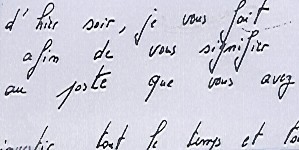 d'hier soir, je vous fait
afin de vous signifier
au poste que vous avez
tout le temps et